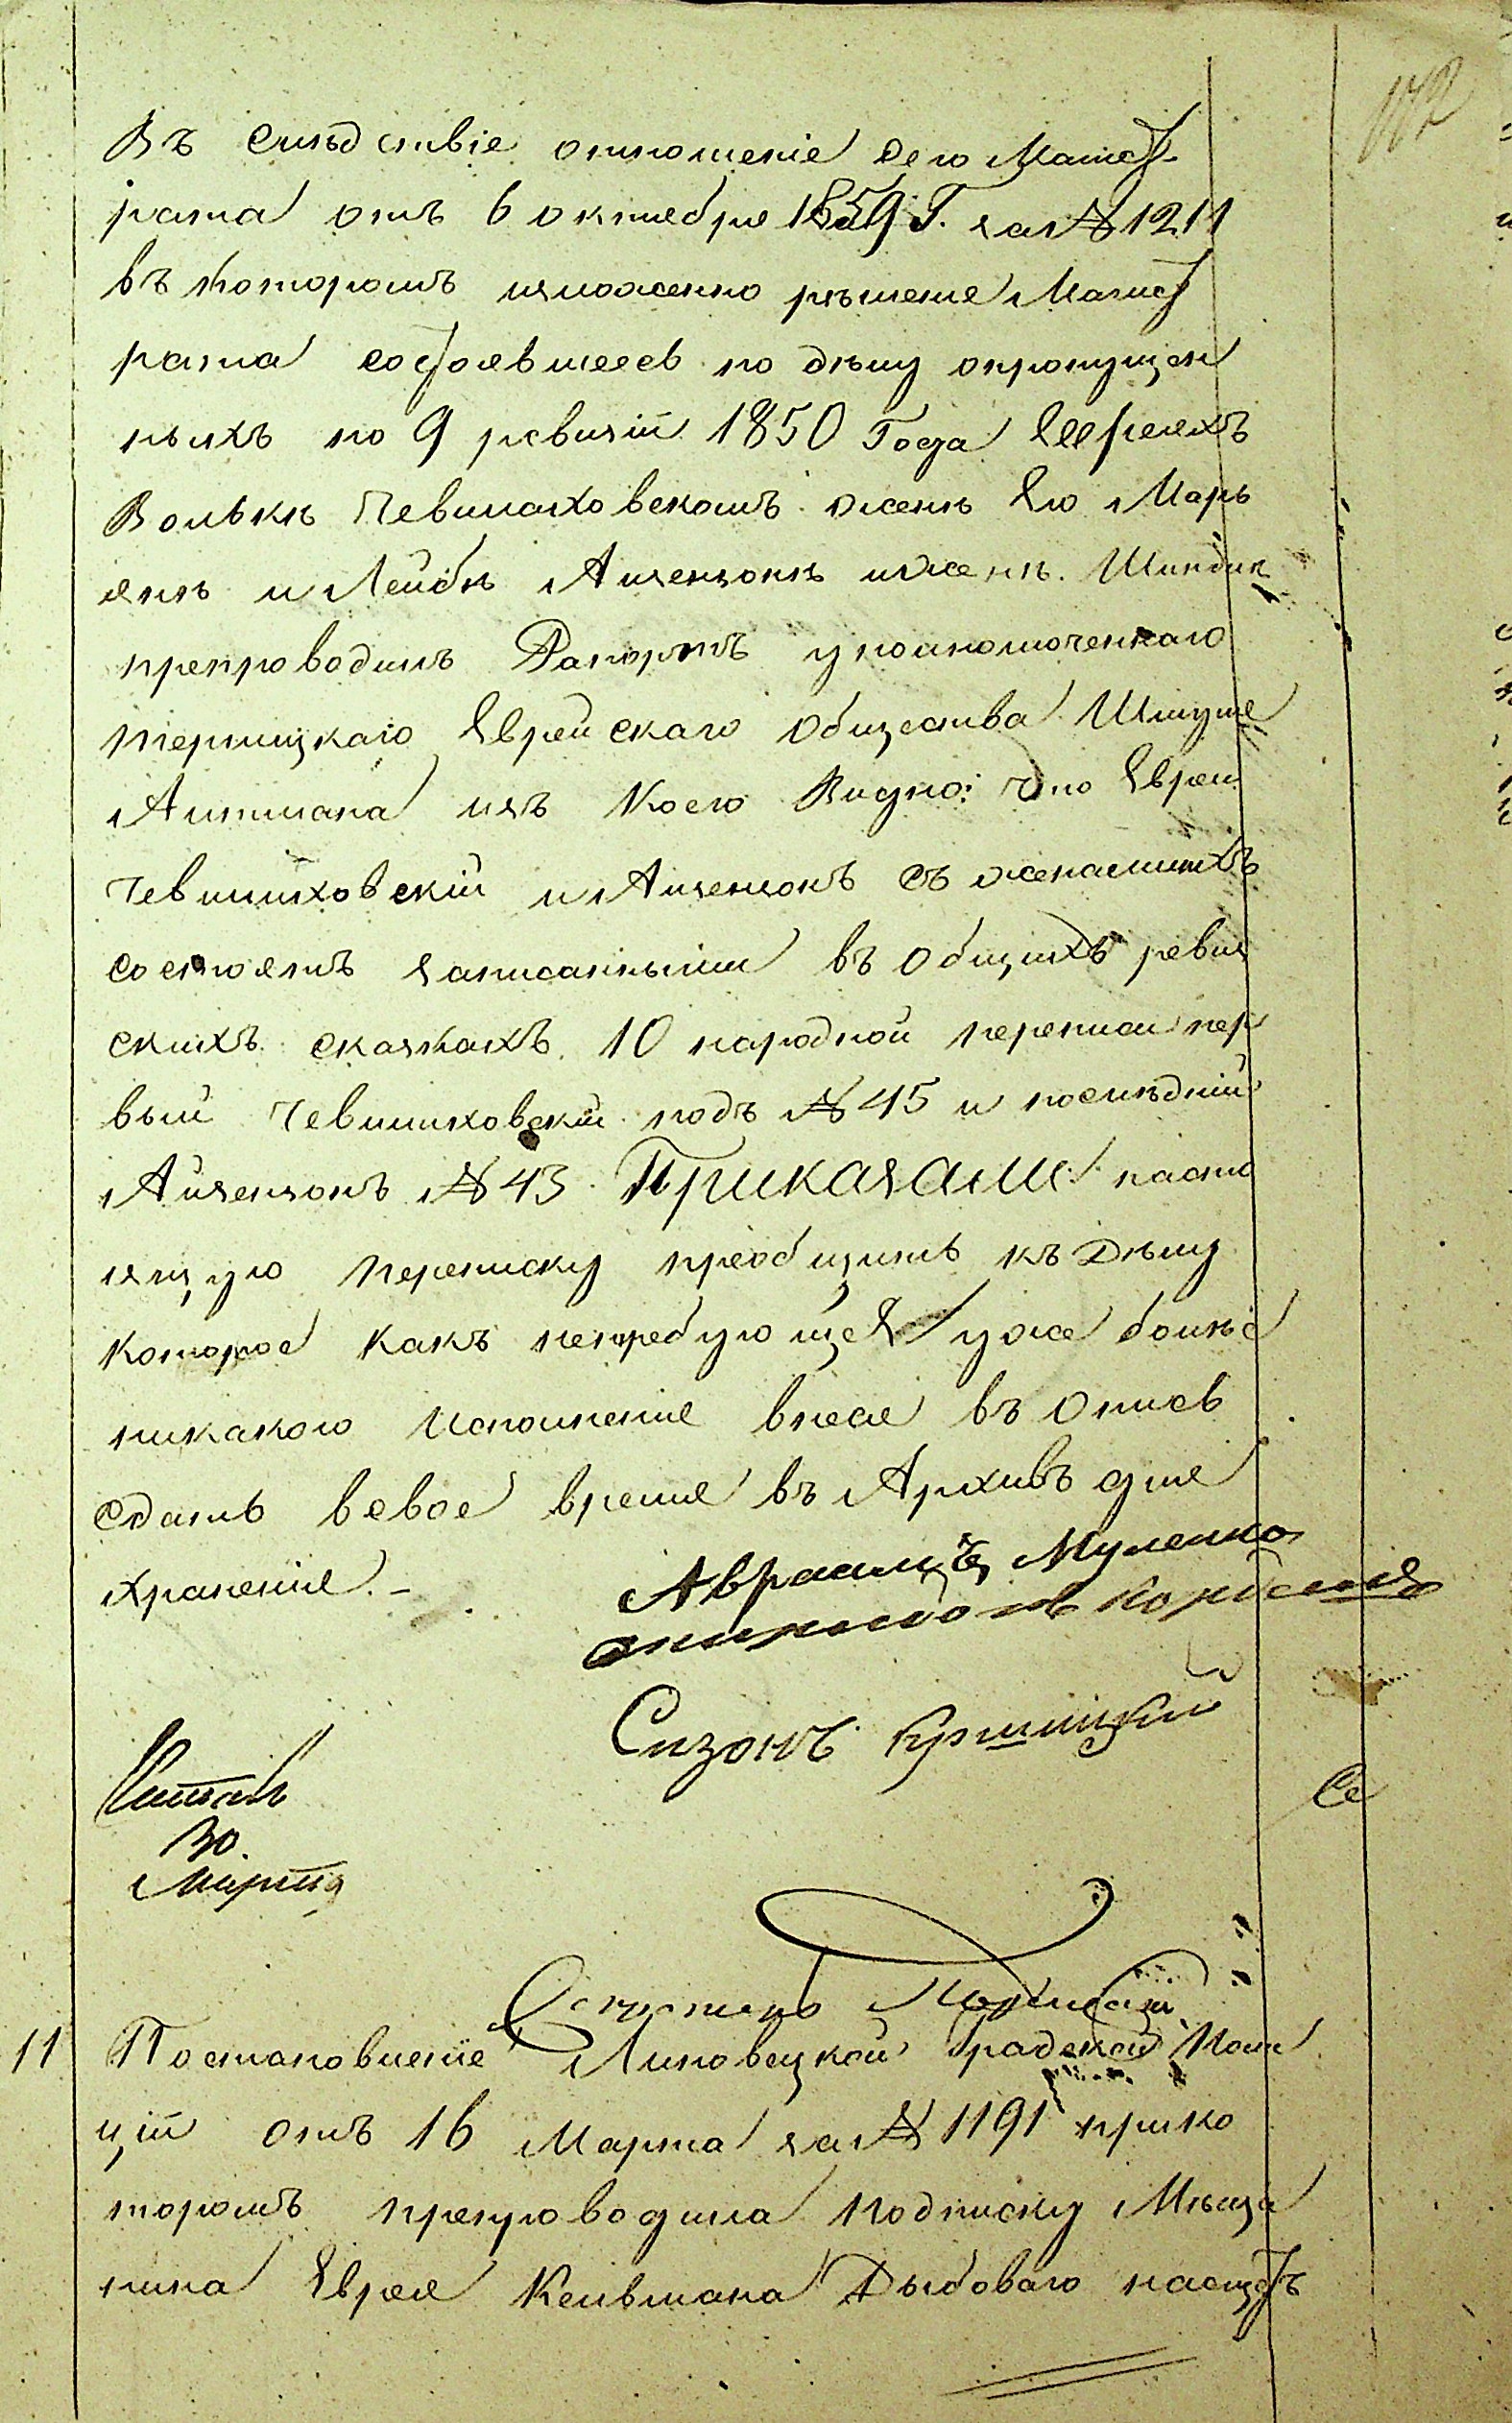 172
Въ следствіе отношеніе сего Магист
рата отъ 6 октебря 1859 Г. за № 1211
въ которомъ изложенно решение Магист
рата состоявшееся по делу опропущен
ныхъ по 9 ревизіи 1850 Года Евреяхъ
Волькѣ Чевилаховскомъ женѣ Его Марь
янѣ и Лейбѣ Айзензонѣ иженѣ Шиндлѣ
препроводилъ Рапортъ уполномоченнаго
Терлицкаго Еврейскаго Общества Шмуле
Литмана изъ коего Видно: что Евреи
Чевилиховскій и Айзензонъ съ женамиихъ
состоятъ записанными въ Общихъ ревиз
скихъ сказкахъ 10 народной переписи пер
вый Чевилиховскій подъ № 45 и последній
Айзензонъ № 43. Приказали: насто
ящую переписку преобщить къ Делу
которое какъ нетребующее уже более
никакого Исполнение внеся въ Опись
сдать всвое время въ Архивъ для
хранение. –
Авраамъ
Сизонъ
Читалъ
30.
Марта
Се
11 Постановление Липовецкой Градской Поли
ціи отъ 16 Марта за № 1191 прико
торомъ препроводила подписку Мѣща
нина Еврея Кельмана Дыбоваго насчетъ